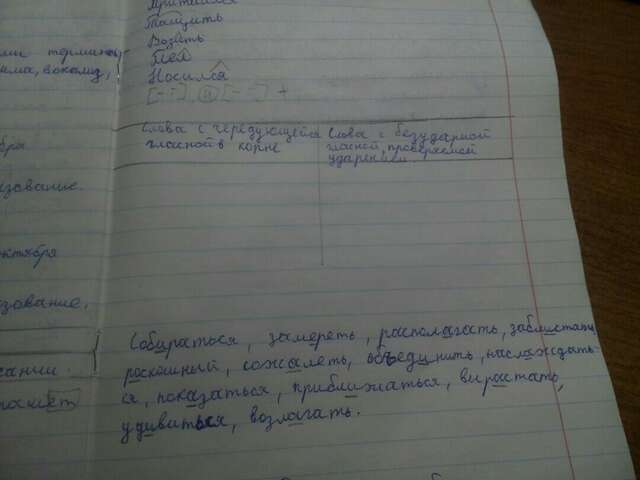 Тащить
Возить
Пея
Носился
[- =] и [- =] +
ми термины
има, вокамд,
Слова с чередующейся
гласной в корне
Слова с безударной
гласной, проверяемой
ударением
бря
зование.
октября
зование.
сании.
Собираться, замереть, располагать, заблистать,
роскошный, сожалеть, объединить, наслаждать-
ся, показаться, приближаться, вырастать,
удивиться, возлагать.